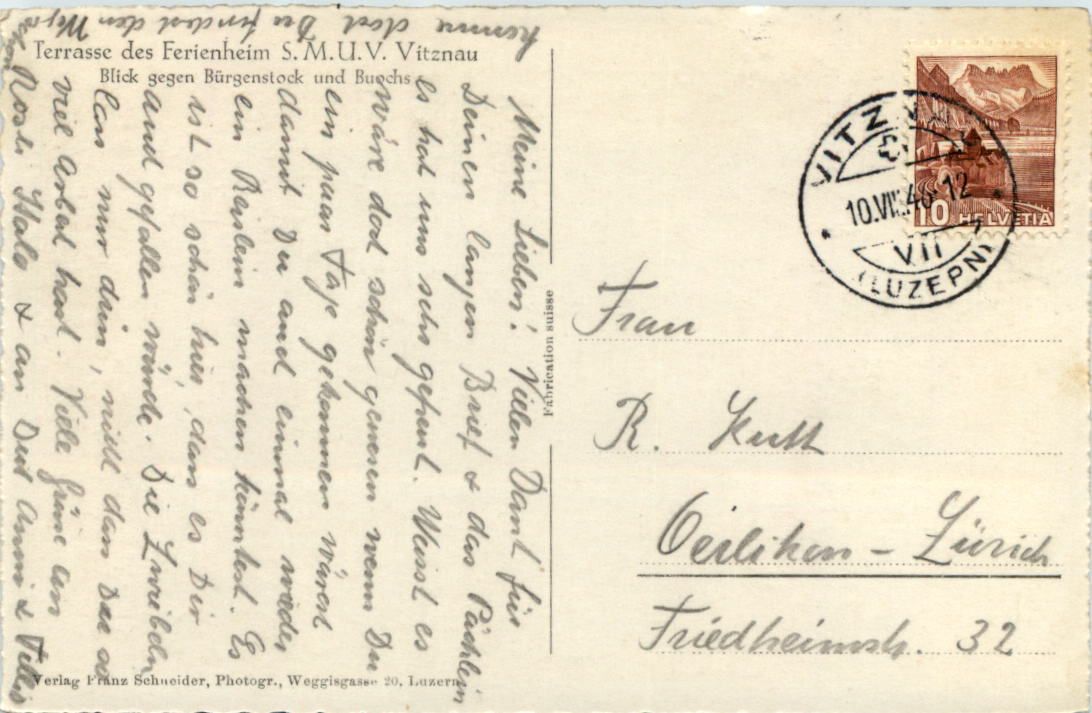 Terrasse des Ferienheim S.M.U.V. Vitznau
Blick gegen Bürgenstock und Buochs
Meine Lieben! Vielen Dank für
Deinen langen Brief & das Päcklein
es hat uns sehr gefreut. Weisst es
wäre doch schön gewesen wenn Du
ein paar Tage gekommen wärest
damit Du auch einmal wieder
ein Reislein machen könntest. Es
ist so schön hier, dass es Dir
auch gefallen würde. Die Zwibeln
lass nur drin, nicht dass Du
viel Arbeit hast. Viele Grüsse an
Rosli & an Dich Anni &
komme doch Du findest den
Fabrication suisse
Verlag Franz Schneider, Photogr., Weggisgasse 20, Luzern
VITZNAU
10.VIII.46-12
VII
(LUZERN)
10 HELVETIA
Frau
R.
Oerlikon - Zürich
Friedheimstr. 32